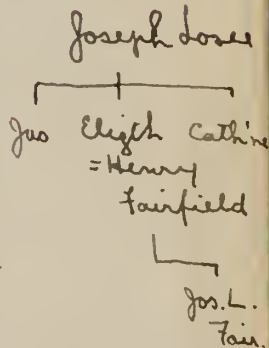 Joseph Losee
Jas Elizth Cath'ne
= Henry
Fairfield
Jos. L.
Fair.